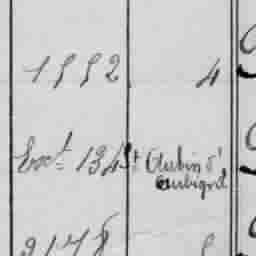 1992 4
Ext. 134 St Aubin d'
Aubigné
2178